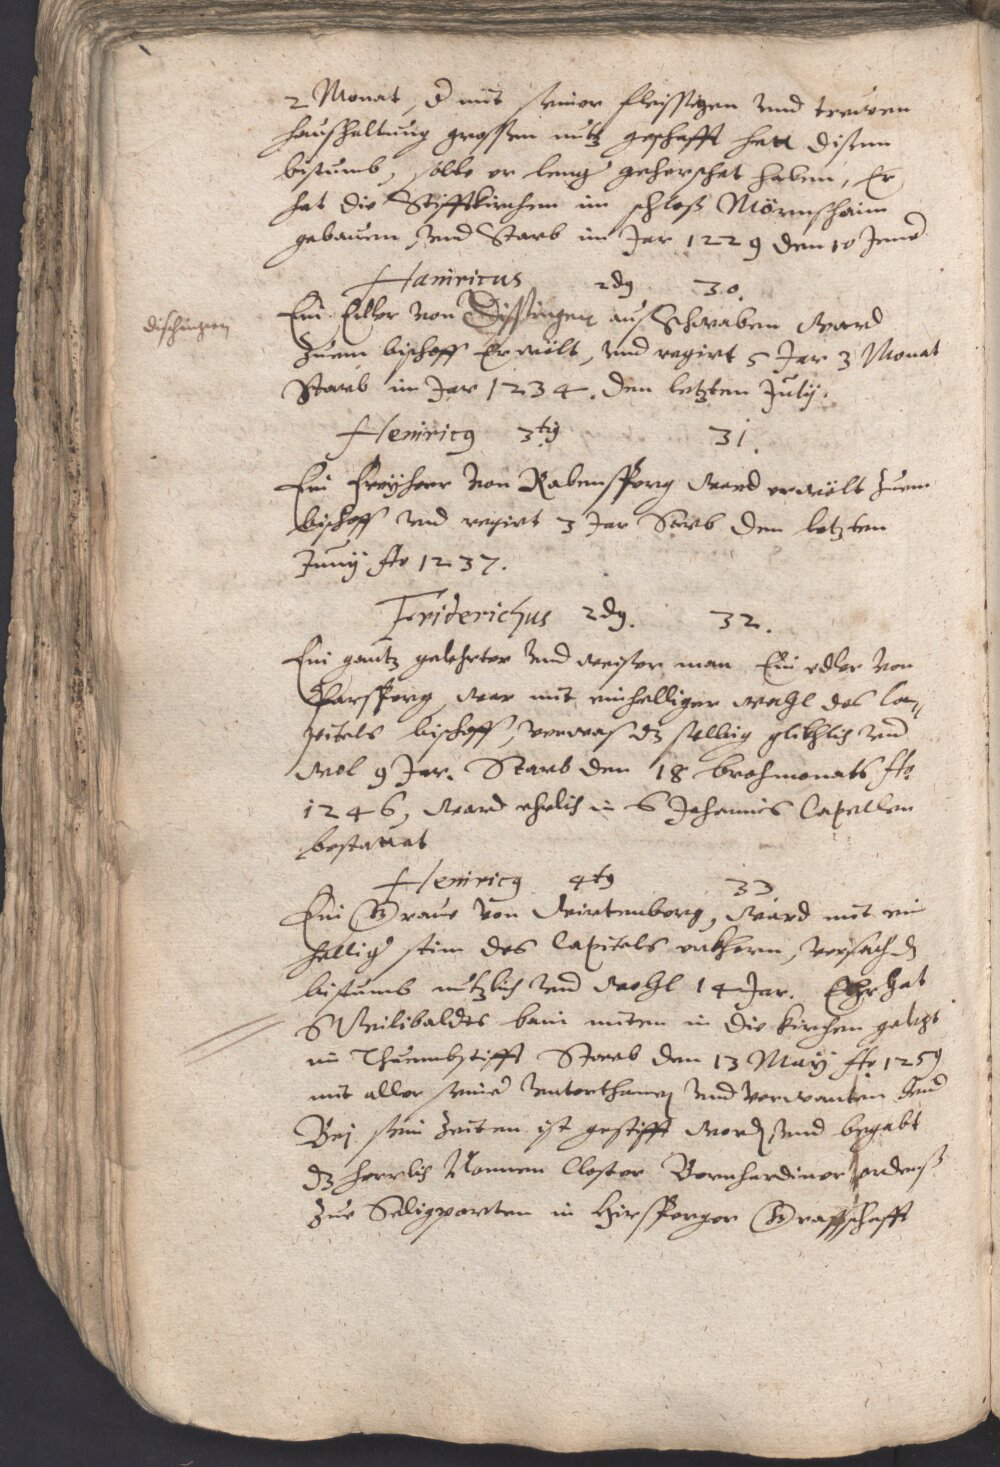 2 Monat, d mit seiner fleissigen vnd trewen
haushaltung grossen nutz geschafft hett disem
bistumb, solte er leng geherschet haben, Er
hat die Stifftkirchen im schloß Mörnshaim
gebauen, vnd Starb im Jar 1229 den 10
Hainricus 2dg 30.
dischingen
Ein Edler von Dissingen aus Schwaben ward
zuem bischoff Erwölt, vnd regirt 5 Jar 3 Monat
Starb im Jar 1234. den letzten July.
Heinricg 3tig 31.
Ein Freyherr von Rabensperg ward erwölt zuem
bischoff vnd regirt 3 Jar Starb den letzten
Juny Ao 1237.
Friderichus 2dg. 32.
Ein gantz gelehrter vnd weiser man Ein edler von
Parsperg, war mit einhelliger wahl des Ca„
pitels bischoff, verwas dz selbig glücklich vnd
wol 9 Jar. Starb den 18 brachmonats Ao
1246, ward ehrlich in S Johannis Capellen
bestattet
Heinricg 4tg 33
Ein Graue von Wirtenberg, Ward mit ein
hellig stim des Capitels erkhorn, versach dz
bistumb nützlich vnd wohl 14 Jar. Ehr hat
S Weilibaldes bain mitten in die kirchen gelegt
im Thuembstifft Starb den 13 May Ao 1259
mit aller seiner vnterthanen vnd verwanten
Bej sein Zeiten ist gestifft worden vnd begabt
dz herrlich Nonnen Closter Bernhardiner ordenß
Zue Seligporten in Hirsperger Graffschafft